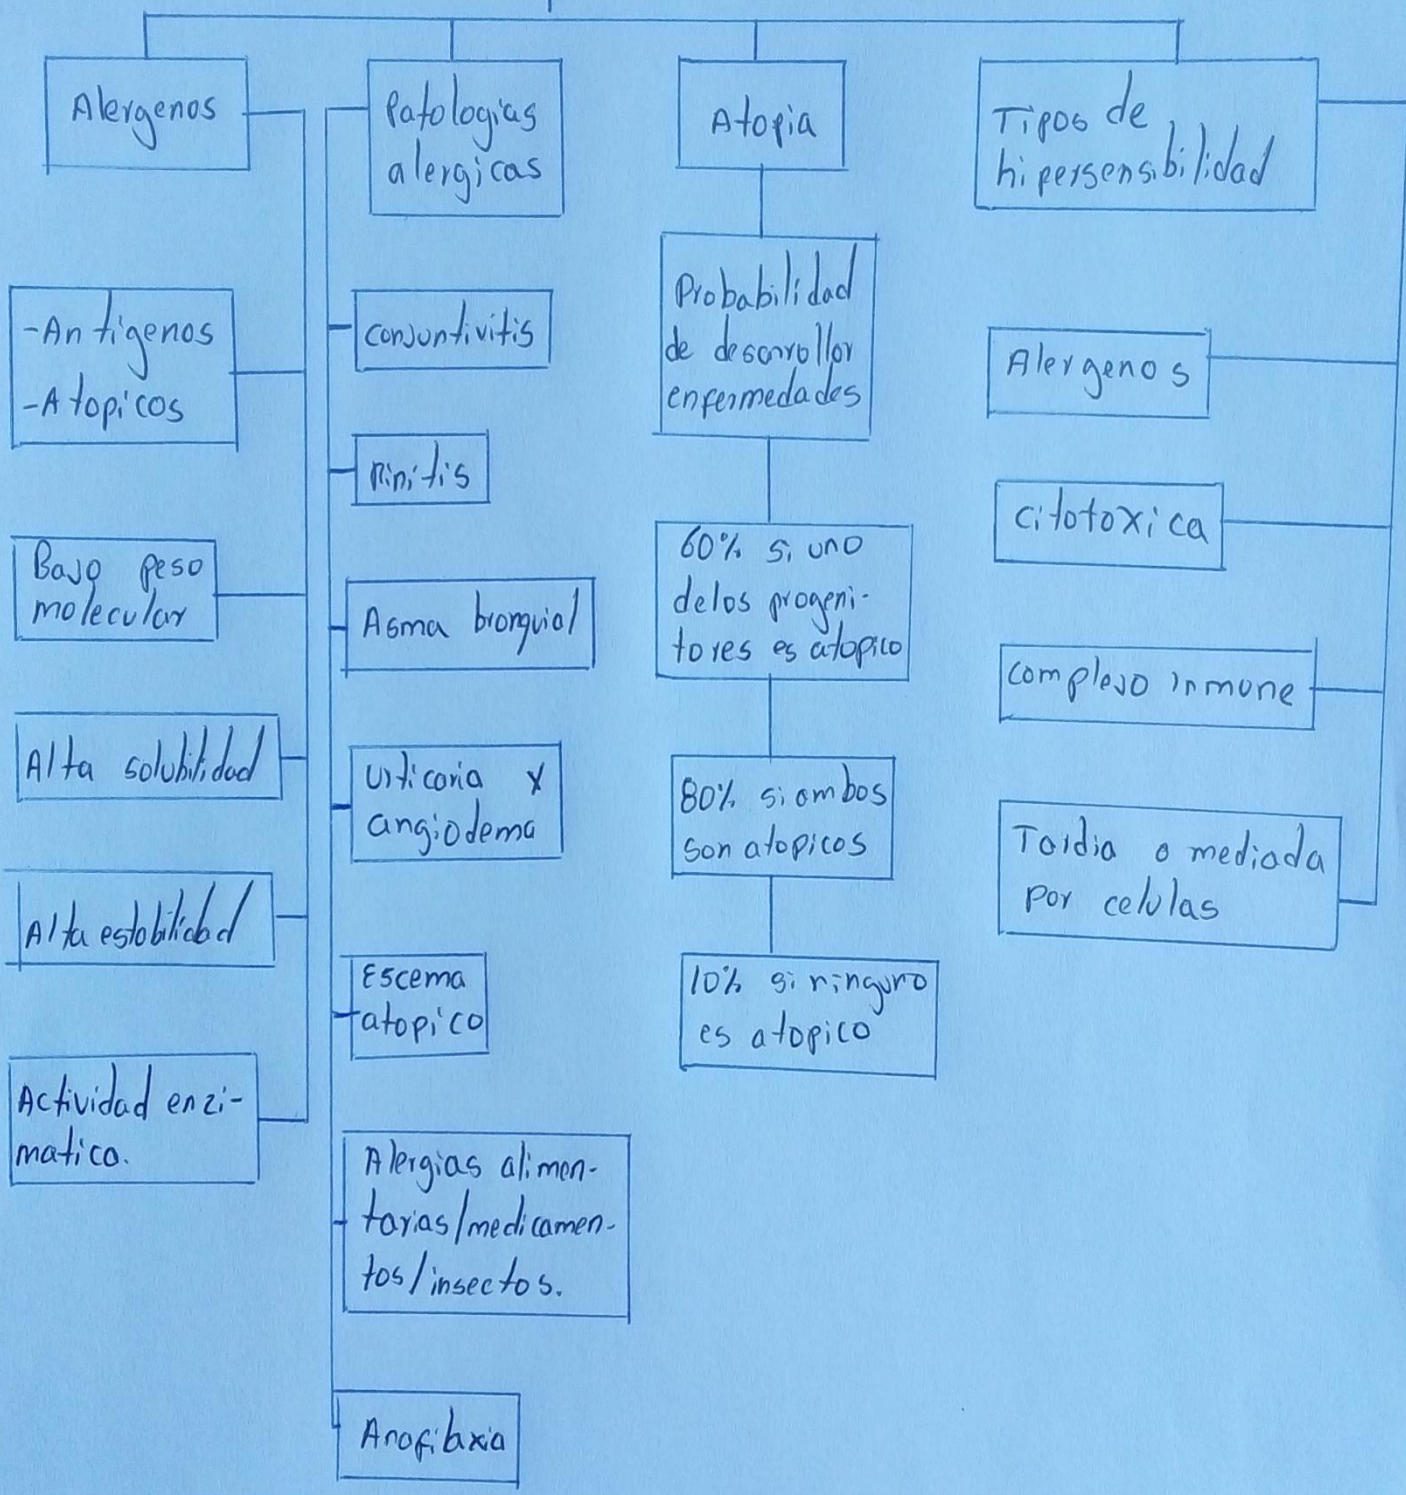 Alergenos
-Antigenos
-Atopicos
Bajo peso
molecular
Alta solubilidad
Alta estabilidad
Actividad enzi-
matico.
Patologias
alergicas
conjuntivitis
Rinitis
Asma bronquial
Urticaria y
angiodema
Escema
atopico
Alergias alimen-
tarias/medicamen-
tos/insectos.
Anafilaxia
Atopia
Probabilidad
de desarrollar
enfermedades
60% si uno
delos progeni-
tores es atopico
80% si ambos
son atopicos
10% si ninguno
es atopico
Tipos de
hipersensibilidad
Alergenos
citotoxica
complejo inmune
Tardia o mediada
por celulas